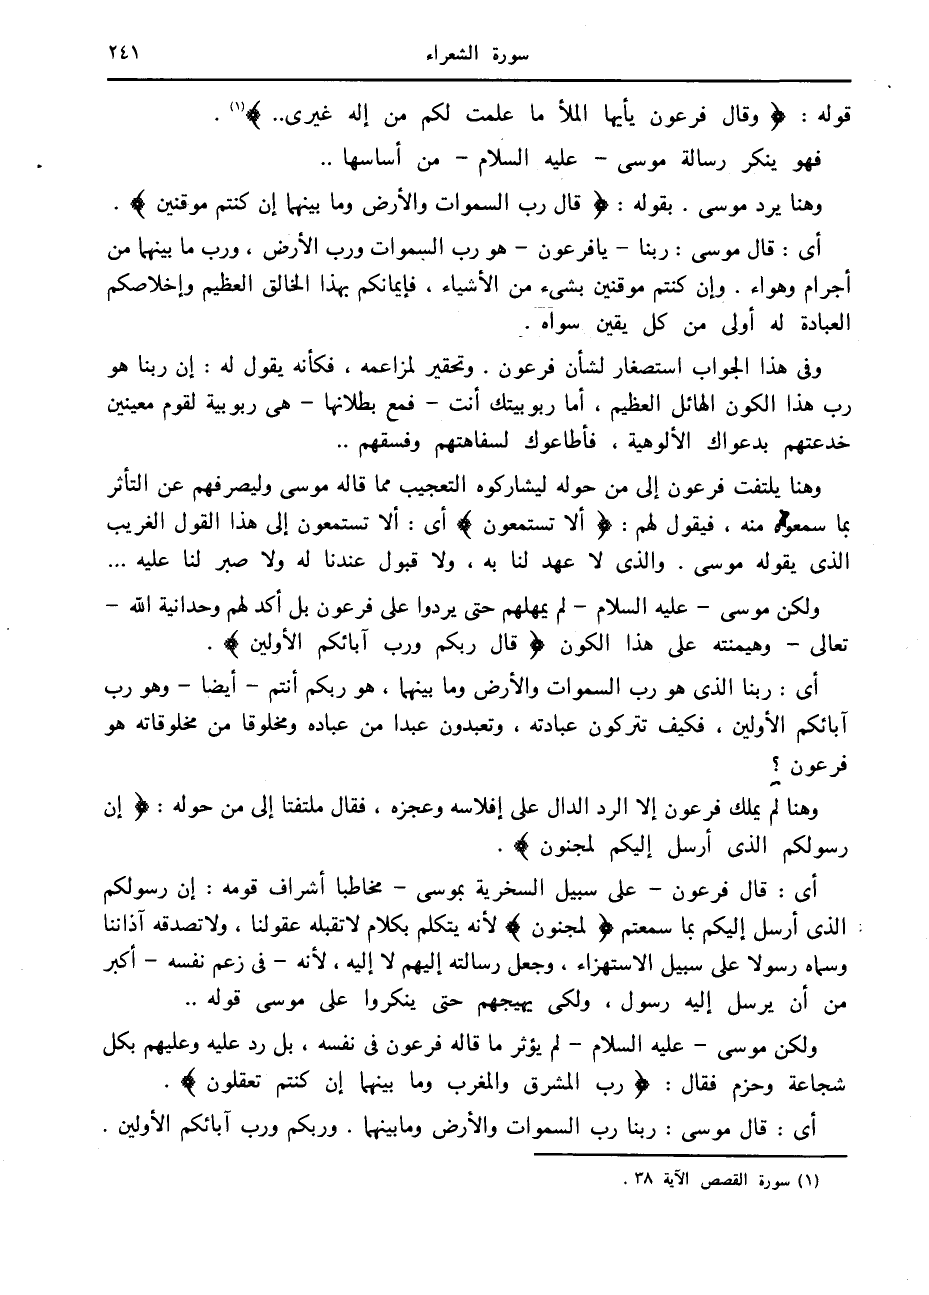 سورة الشعراء ٢٤١
قوله : ﴿ وقال فرعون يأيها الملأ ما علمت لكم من إله غيرى.. ﴾(١) .
فهو ينكر رسالة موسى – عليه السلام – من أساسها ..
وهنا يرد موسى . بقوله : ﴿ قال رب السموات والأرض وما بينهما إن كنتم موقنين ﴾ .
أى : قال موسى : ربنا – يافرعون – هو رب السموات ورب الأرض ، ورب ما بينهما من
أجرام وهواء . وإن كنتم موقنين بشىء من الأشياء ، فإيمانكم بهذا الخالق العظيم وإخلاصكم
العبادة له أولى من كل يقين سواه .
وفى هذا الجواب استصغار لشأن فرعون . وتحقير لمزاعمه ، فكأنه يقول له : إن ربنا هو
رب هذا الكون الهائل العظيم ، أما ربوبيتك أنت – فمع بطلانها – هى ربوبية لقوم معينين
خدعتهم بدعواك الألوهية ، فأطاعوك لسفاهتهم وفسقهم ..
وهنا يلتفت فرعون إلى من حوله ليشاركوه التعجيب مما قاله موسى وليصرفهم عن التأثر
بما سمعوه منه ، فيقول لهم : ﴿ ألا تستمعون ﴾ أى : ألا تستمعون إلى هذا القول الغريب
الذى يقوله موسى . والذى لا عهد لنا به ، ولا قبول عندنا له ولا صبر لنا عليه ...
ولكن موسى – عليه السلام – لم يمهلهم حتى يردوا على فرعون بل أكد لهم وحدانية الله –
تعالى – وهيمنته على هذا الكون ﴿ قال ربكم ورب آبائكم الأولين ﴾ .
أى : ربنا الذى هو رب السموات والأرض وما بينهما ، هو ربكم أنتم – أيضا – وهو رب
آبائكم الأولين ، فكيف تتركون عبادته ، وتعبدون عبدا من عباده ومخلوقا من مخلوقاته هو
فرعون ؟
وهنا لم يملك فرعون إلا الرد الدال على إفلاسه وعجزه ، فقال ملتفتا إلى من حوله : ﴿ إن
رسولكم الذى أرسل إليكم لمجنون ﴾ .
أى : قال فرعون – على سبيل السخرية بموسى – مخاطبا أشراف قومه : إن رسولكم
الذى أرسل إليكم بما سمعتم ﴿ لمجنون ﴾ لأنه يتكلم بكلام لاتقبله عقولنا ، ولاتصدقه آذاننا
وسماه رسولا على سبيل الاستهزاء ، وجعل رسالته إليهم لا إليه ، لأنه – فى زعم نفسه – أكبر
من أن يرسل إليه رسول ، ولكى يهيجهم حتى ينكروا على موسى قوله ..
ولكن موسى – عليه السلام – لم يؤثر ما قاله فرعون فى نفسه ، بل رد عليه وعليهم بكل
شجاعة وحزم فقال : ﴿ رب المشرق والمغرب وما بينهما إن كنتم تعقلون ﴾ .
أى : قال موسى : ربنا رب السموات والأرض ومابينهما . وربكم ورب آبائكم الأولين .
(١) سورة القصص الآية ٣٨ .